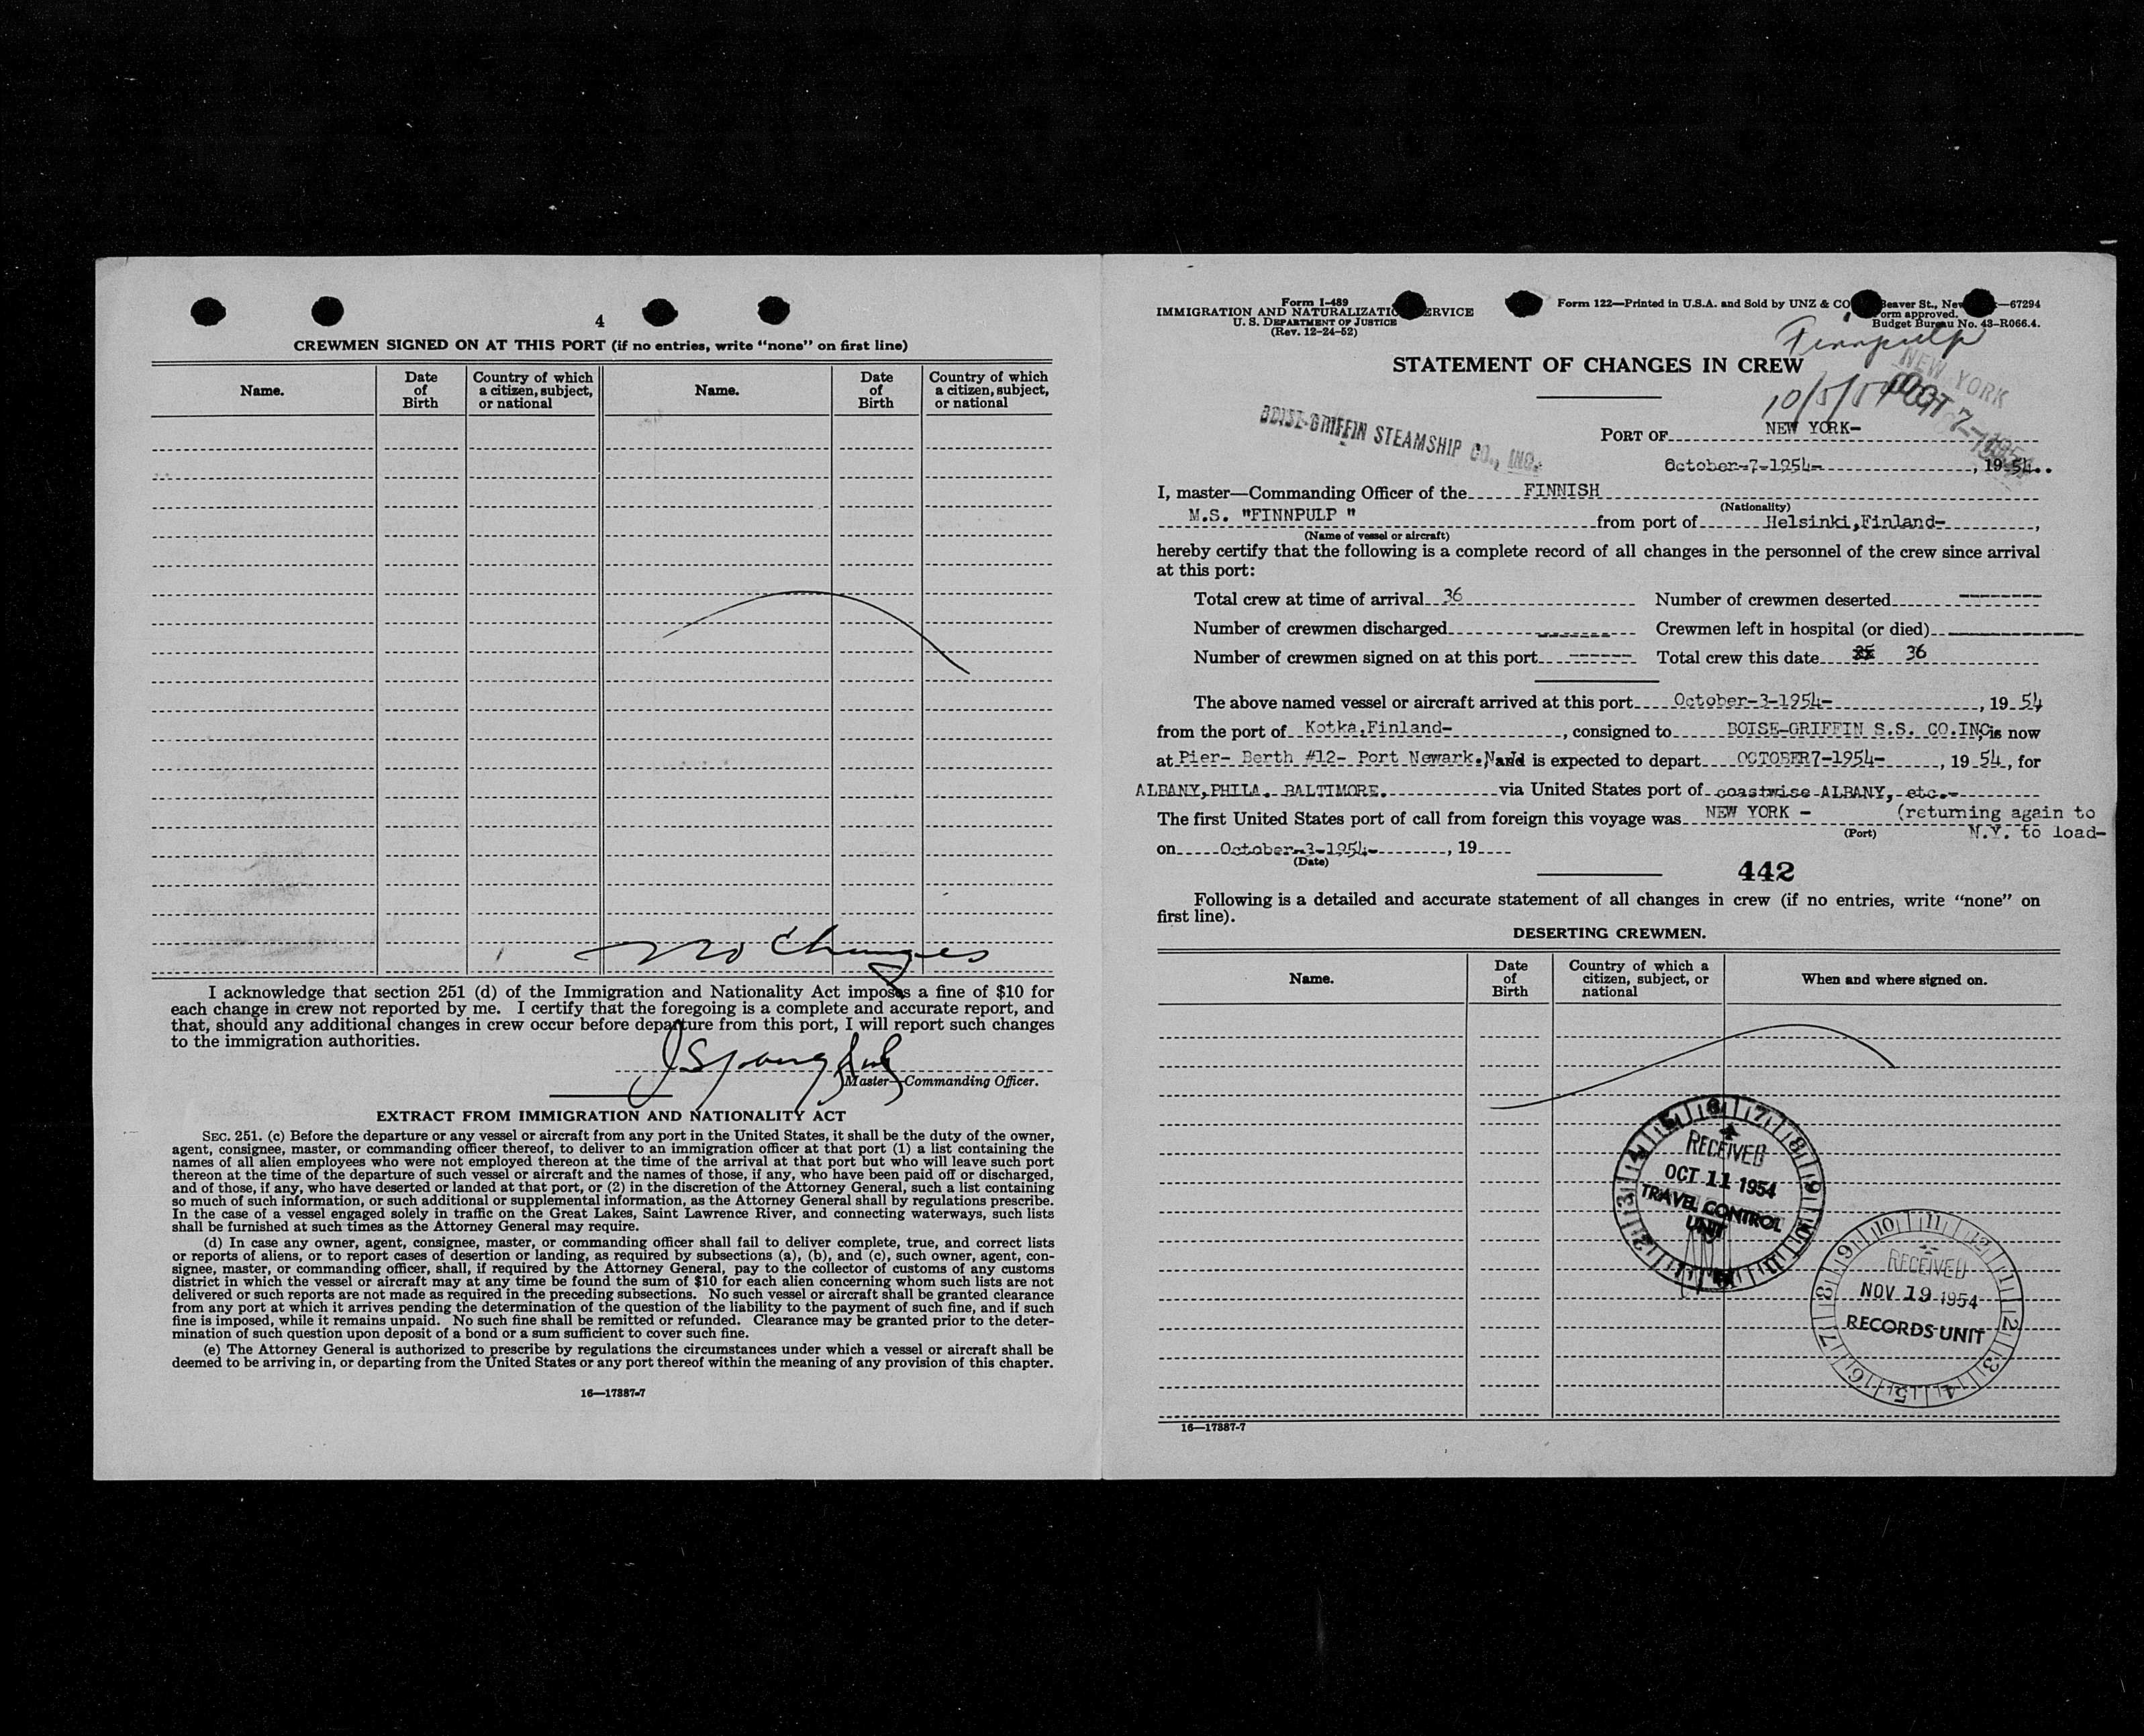 4
CREWMEN SIGNED ON AT THIS PORT (if no entries, write "none" on first line)
Name. Date of Birth Country of which a citizen, subject, or national Name. Date of Birth Country of which a citizen, subject, or national
No Changes
I acknowledge that section 251 (d) of the Immigration and Nationality Act imposes a fine of $10 for
each change in crew not reported by me. I certify that the foregoing is a complete and accurate report, and
that, should any additional changes in crew occur before departure from this port, I will report such changes
to the immigration authorities.
Master—Commanding Officer.
EXTRACT FROM IMMIGRATION AND NATIONALITY ACT
SEC. 251. (c) Before the departure or any vessel or aircraft from any port in the United States, it shall be the duty of the owner,
agent, consignee, master, or commanding officer thereof, to deliver to an immigration officer at that port (1) a list containing the
names of all alien employees who were not employed thereon at the time of the arrival at that port but who will leave such port
thereon at the time of the departure of such vessel or aircraft and the names of those, if any, who have been paid off or discharged,
and of those, if any, who have deserted or landed at that port, or (2) in the discretion of the Attorney General, such a list containing
so much of such information, or such additional or supplemental information, as the Attorney General shall by regulations prescribe.
In the case of a vessel engaged solely in traffic on the Great Lakes, Saint Lawrence River, and connecting waterways, such lists
shall be furnished at such times as the Attorney General may require.
(d) In case any owner, agent, consignee, master, or commanding officer shall fail to deliver complete, true, and correct lists
or reports of aliens, or to report cases of desertion or landing, as required by subsections (a), (b), and (c), such owner, agent, con-
signee, master, or commanding officer, shall, if required by the Attorney General, pay to the collector of customs of any customs
district in which the vessel or aircraft may at any time be found the sum of $10 for each alien concerning whom such lists are not
delivered or such reports are not made as required in the preceding subsections. No such vessel or aircraft shall be granted clearance
from any port at which it arrives pending the determination of the question of the liability to the payment of such fine, and if such
fine is imposed, while it remains unpaid. No such fine shall be remitted or refunded. Clearance may be granted prior to the deter-
mination of such question upon deposit of a bond or a sum sufficient to cover such fine.
(e) The Attorney General is authorized to prescribe by regulations the circumstances under which a vessel or aircraft shall be
deemed to be arriving in, or departing from the United States or any port thereof within the meaning of any provision of this chapter.
16—17887-7
Form I-489
IMMIGRATION AND NATURALIZATIO ERVICE
U. S. DEPARTMENT OF JUSTICE
(Rev. 12-24-52)
Form 122—Printed in U.S.A. and Sold by UNZ & CO Beaver St., New —67294
orm approved.
Budget Bureau No. 43-R066.4.
Finnpulp
STATEMENT OF CHANGES IN CREW
NEW YORK
OCT 7-1954
10/5/54
BOISE-GRIFFIN STEAMSHIP CO., INC.
PORT OF NEW YORK-
October-7-1954- , 19 54
I, master—Commanding Officer of the FINNISH
(Nationality)
M.S. "FINNPULP " from port of Helsinki,Finland- ,
(Name of vessel or aircraft)
hereby certify that the following is a complete record of all changes in the personnel of the crew since arrival
at this port:
Total crew at time of arrival 36 Number of crewmen deserted -------
Number of crewmen discharged ------- Crewmen left in hospital (or died) -------
Number of crewmen signed on at this port ------ Total crew this date 36
The above named vessel or aircraft arrived at this port October-3-1954- , 19 54
from the port of Kotka,Finland- , consigned to BOISE-GRIFFIN S.S. CO.INC is now
at Pier- Berth #12- Port Newark.N and is expected to depart OCTOBER7-1954- , 19 54 , for
ALBANY,PHILA. BALTIMORE. via United States port of coastwise ALBANY, etc.-
The first United States port of call from foreign this voyage was NEW YORK - (returning again to
(Port) N.Y. to load-
on October-3-1954- , 19
(Date)
442
Following is a detailed and accurate statement of all changes in crew (if no entries, write "none" on
first line).
DESERTING CREWMEN.
Name. Date of Birth Country of which a citizen, subject, or national When and where signed on.
RECEIVED
OCT 11 1954
TRAVEL CONTROL
UNIT
RECEIVED
NOV 19 1954
RECORDS UNIT
16—17887-7